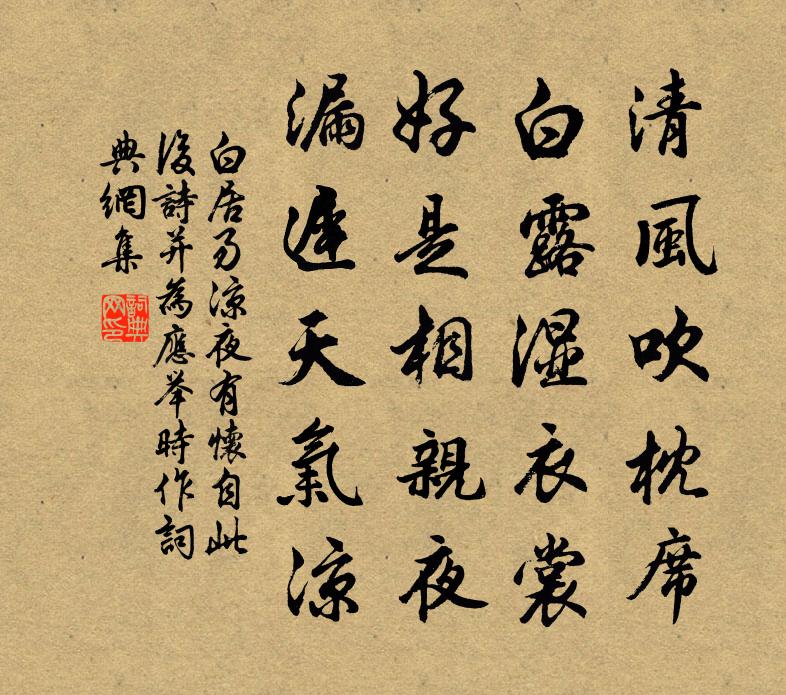 清風吹枕席
白露濕衣裳
好是相親夜
漏遲天氣涼
白居易涼夜有懷自此
後詩并為應举時作詞
典網集
詞典
网印